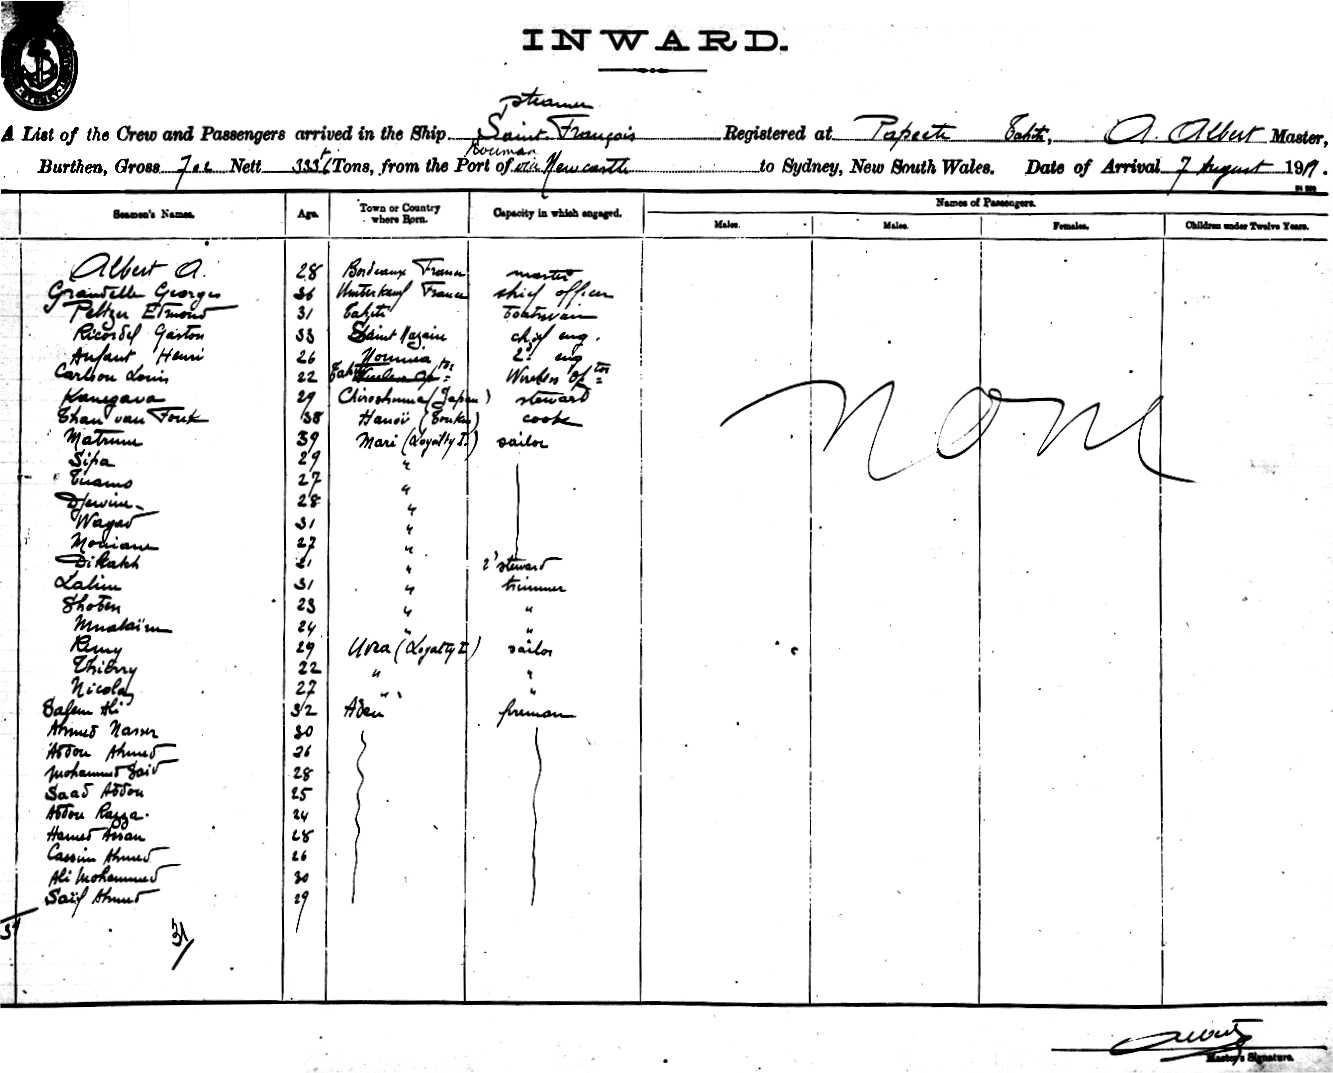 INWARD.
steamer
A List of the Crew and Passengers arrived in the Ship Saint François Registered at Papeete Tahiti, A. Albert Master,
Noumea
Burthen, Gross Nett Tons, from the Port of via Newcastle to Sydney, New South Wales. Date of Arrival 7 August 1917.
Seamen's Names. Age. Town or Country where Born. Capacity in which engaged. Names of Passengers.
Males. Males. Females. Children under Twelve Years.
Albert A. 28 Bordeaux France master
Grandelle Georges 36 France chief officer
Peltzer Edmond 31 Tahiti boatswain
Ricordel Gaston 33 Saint Nazaire chief eng.
Anfant Henri 26 Noumea 2d eng
Carlson Louis 22 Tahiti Wireless Op tor
Kanegava 29 Chiroshima (Japan) steward
Than van Fouk 38 Hanoï (Tonkin) cook
Matrum 39 Maré (Loyalty I.) sailor
Sipa 29 "
Tuamo 27 "
Djewine 28 "
Wagad 31 "
Mouiane 27 "
Dikakh 21 " 2d steward
Lalim 31 " trimmer
Shoten 23 " "
24 " "
Remy 29 Uvea (Loyalty I) sailor
Thierry 22 " "
Nicolas 27 " "
Salem Ali 32 Aden fireman
Ahmed Nasser 30
Abdou Ahmed 26
Mohammed Said 28
Saad Abdou 25
Abdou Razza. 24
Hamed Assan 28
Cassim Ahmed 26
Ali Mohammed 30
Saïf Ahmed 29
none
31
31
Albert
Master's Signature.